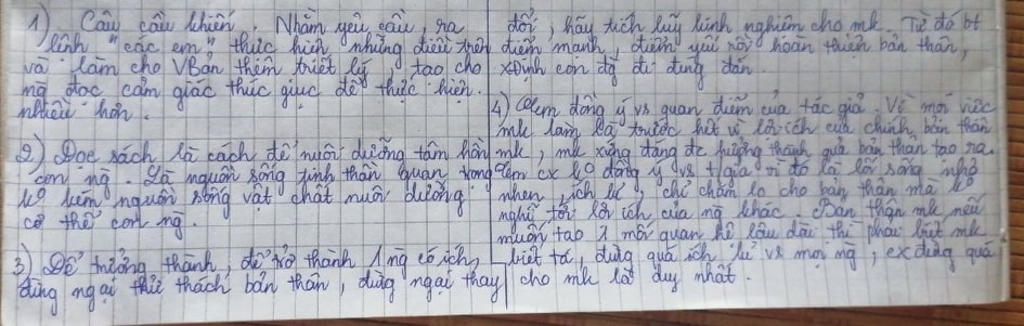 1) Câu cầu khiến. Nhằm yêu cầu, ra
lệnh "các em" thực hiện những điều trên
và làm cho VBản thêm triết lý, tạo cho
ng đọc cảm giác thúc giục để thực hiện
nhiều hơn.
2) Đọc sách là cách để nuôi dưỡng tâm hồn
con ng. Là nguồn sống tinh thần quan trọng
ko kém nguồn sống vật chất nuôi dưỡng
cơ thể con ng.
3) Để trưởng thành, để trở thành 1 ng có ích,
đừng ngại thử thách bản thân, đừng ngại thay
đổi, hãy tích luỹ kinh nghiệm cho mk. Từ đó bt
điểm mạnh, điểm yếu rồi hoàn thiện bản thân,
xđịnh con đg đi đúng đắn.
4) em đồng ý vs quan điểm của tác giả. Vì mọi việc
mk làm là trước hết vì lợi ích của chính bản thân
mk, mk xứng đáng đc hưởng thành quả bản thân tạo ra.
em ko đồng ý vs t/giả vì đó là lối sống nhỏ
nhen, ích kỉ, chỉ chăm lo cho bản thân mà ko
nghĩ tới lợi ích của ng khác. Bản thân mk nếu
muốn tạo 1 mối quan hệ lâu dài thì phải biết mk
biết ta, đừng quá ích kỉ vs mọi ng, đừng quá
cho mk là duy nhất.